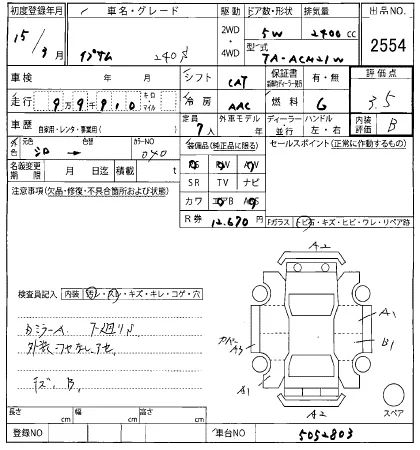 初度登録年月 車名・グレード 駆動 ドア数・形状 排気量 出品NO.
15/9月 イプサム 240S 2WD・4WD 5W 2400cc 2554
型式 TA-ACM21W
車検 年 月 シフト CAT 保証書 有・無 評価点
走行 99910 キロ・マイル 冷房 AAC 燃料 G 3.5
車歴 自家用・レンタ・事業用( ) 定員 7人 外車モデル 年 ディーラー・並行 ハンドル 左・右 内装評価 B
外色 元色 シロ 色替 カラーNO 040 装備品(純正品に限る) セールスポイント(正常に作動するもの)
名義変更期限 月 日迄 積載 t PS PW
注意事項(欠品・修復・不具合箇所および状態) SR TV ナビ
カワ エアB
R券 12.670円 Fガラス トビ石・キズ・ヒビ・ワレ・リペア跡
A2
検査員記入 内装 キズ・キレ・コゲ・穴
A1
A3 B1
A1
キズ、B,
A2
スペア
長さ cm 幅 cm 高さ cm
登録NO 車台NO 5052803